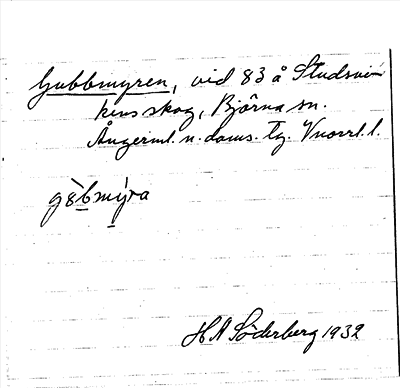 Gubbmyren, vid 83 å Studsvi-
kens skog, Björna sn.
Ångerml. n. doms. tg. Vnorrl. l.
gòbmýra
H A Söderberg 1932